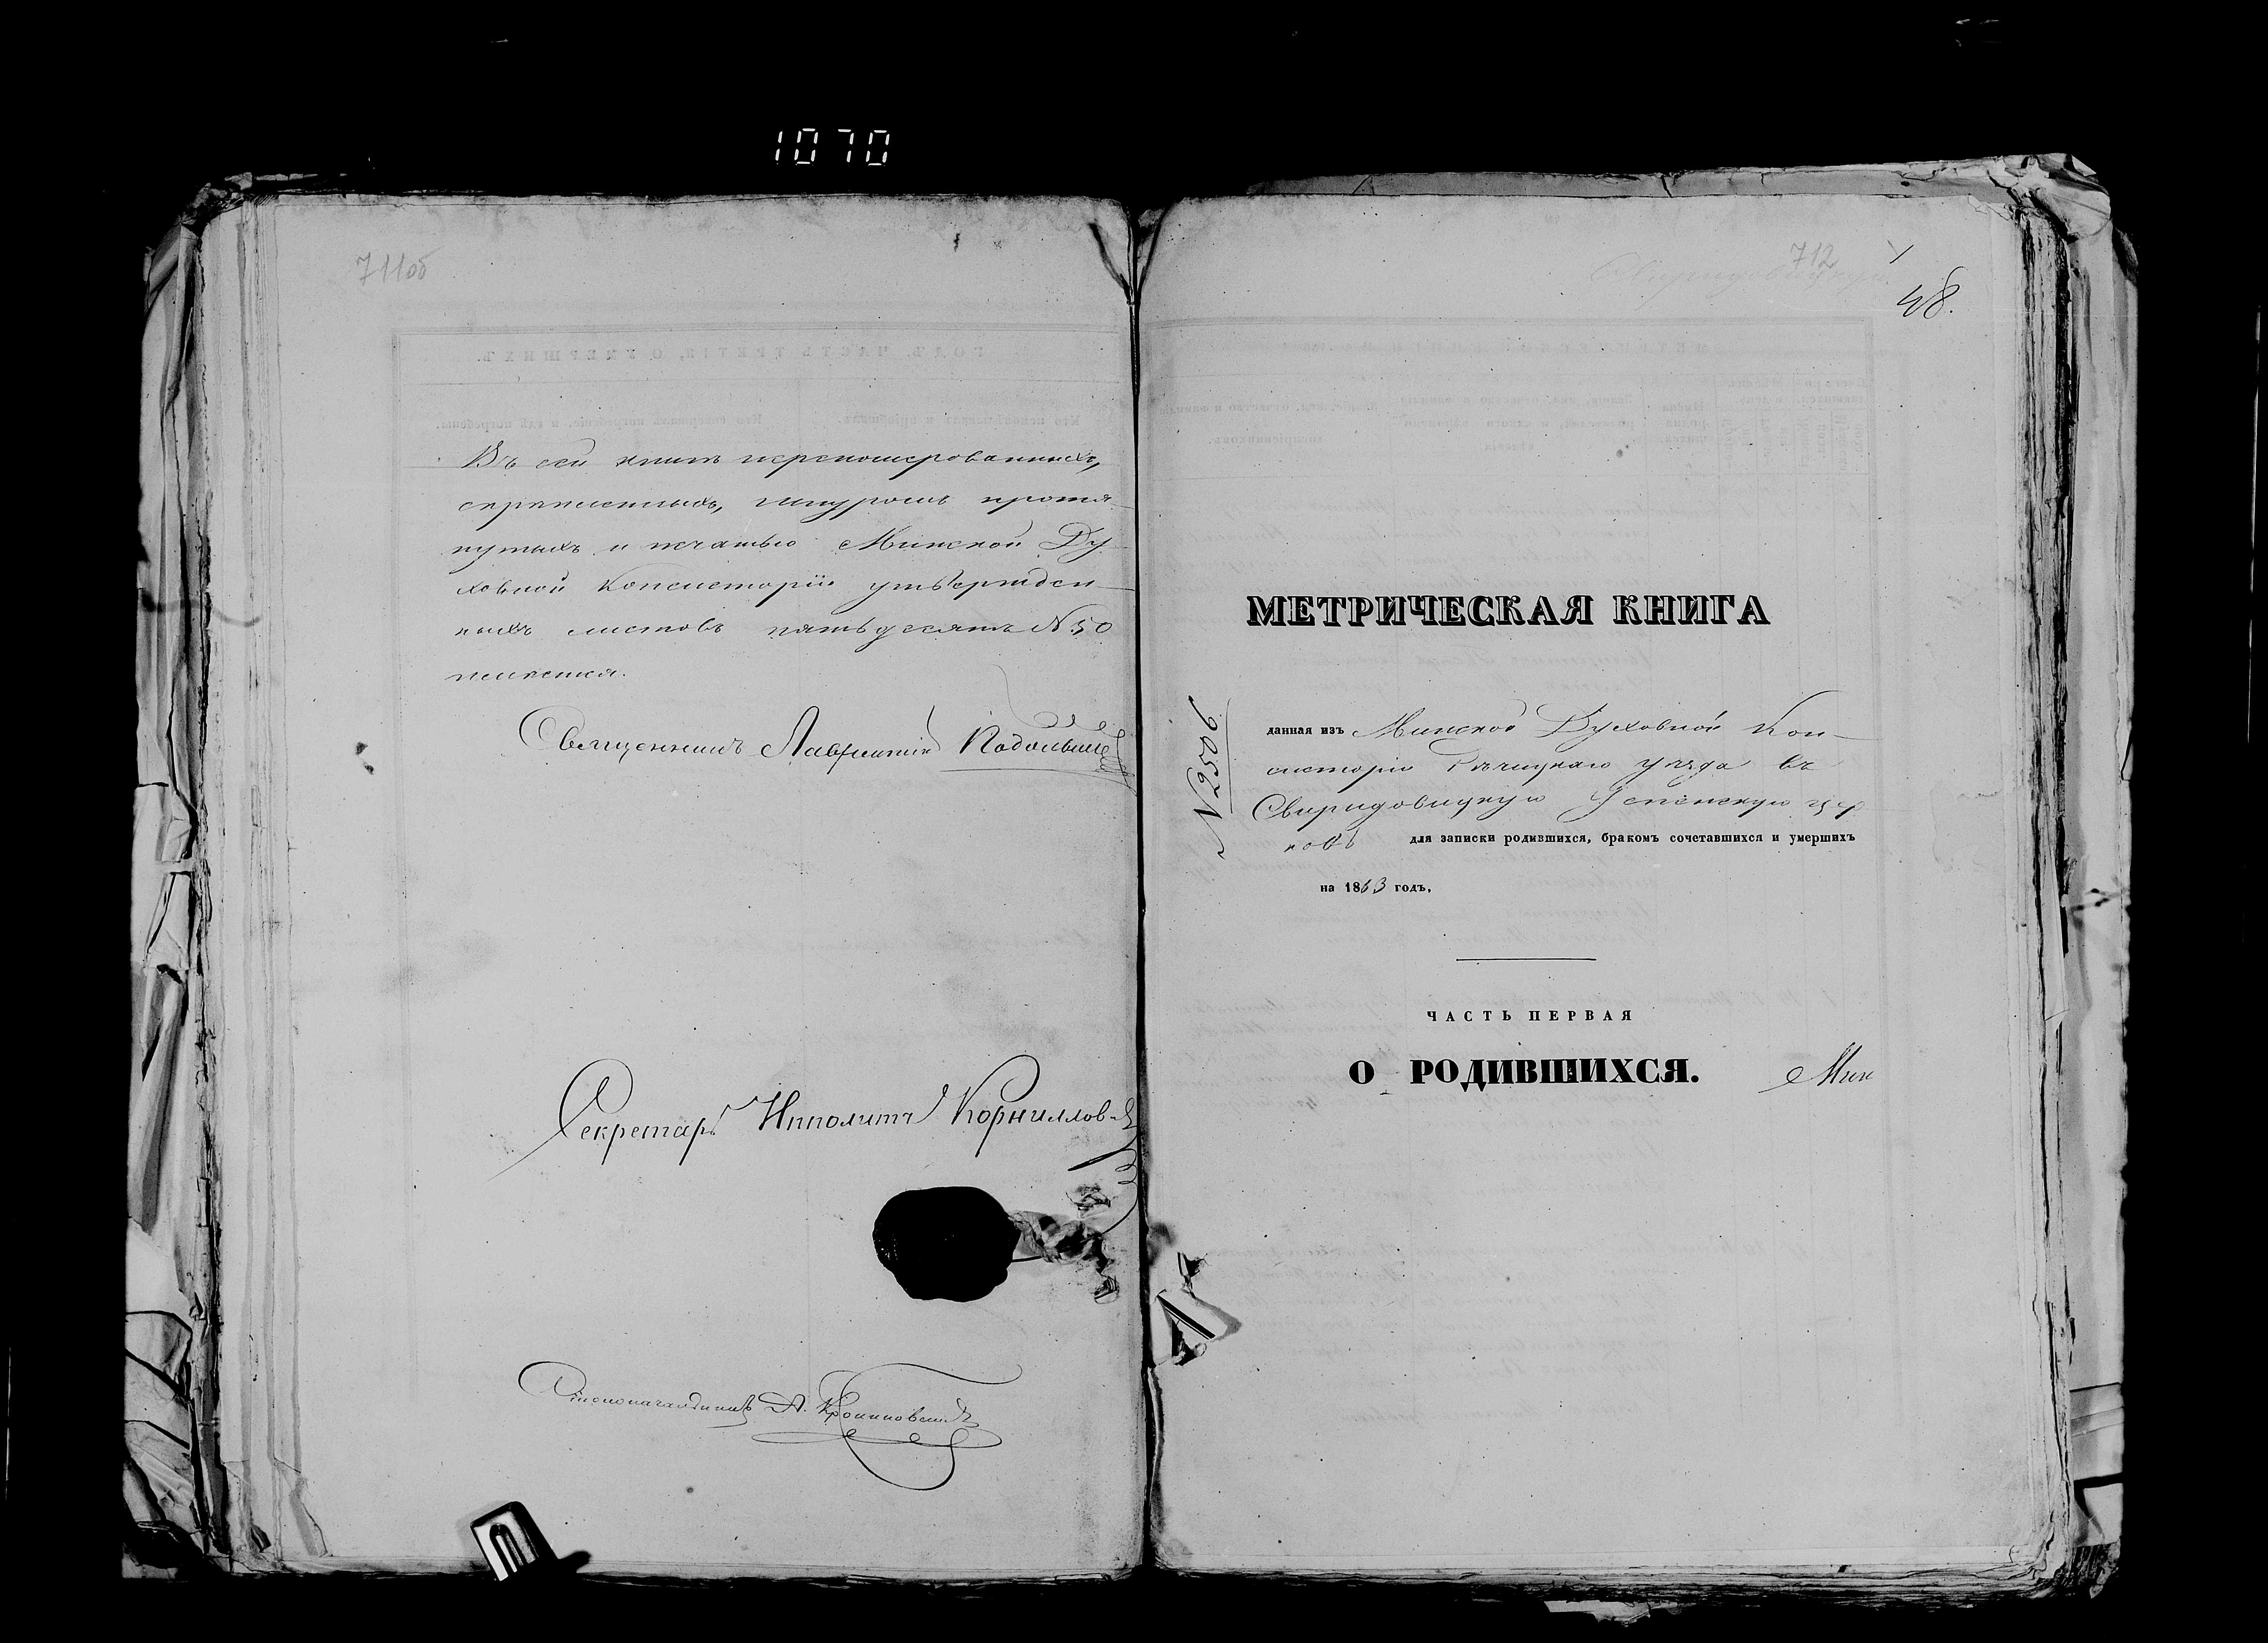 1070
711об
Въ сей книгѣ перенумерованныхъ,
скрѣпленныхъ, шнуромъ протя-
нутыхъ и печатью Минской Ду-
ховной Консисторіи утвержден-
ныхъ листовъ пятьдесятъ № 50
имѣется.
Священникъ Лаврентій
Секретарь Ипполитъ Корниллов
Столоначальникъ А.
712
48.
МЕТРИЧЕСКАЯ КНИГА
№ 2506
данная изъ Минской Духовной Кон-
систоріи Рѣчицкаго уѣзда въ
Свиридовицкую Успенскую цер
ковь для записки родившихся, бракомъ сочетавшихся и умершихъ
на 1863 годъ.
ЧАСТЬ ПЕРВАЯ
О РОДИВШИХСЯ.
Мин